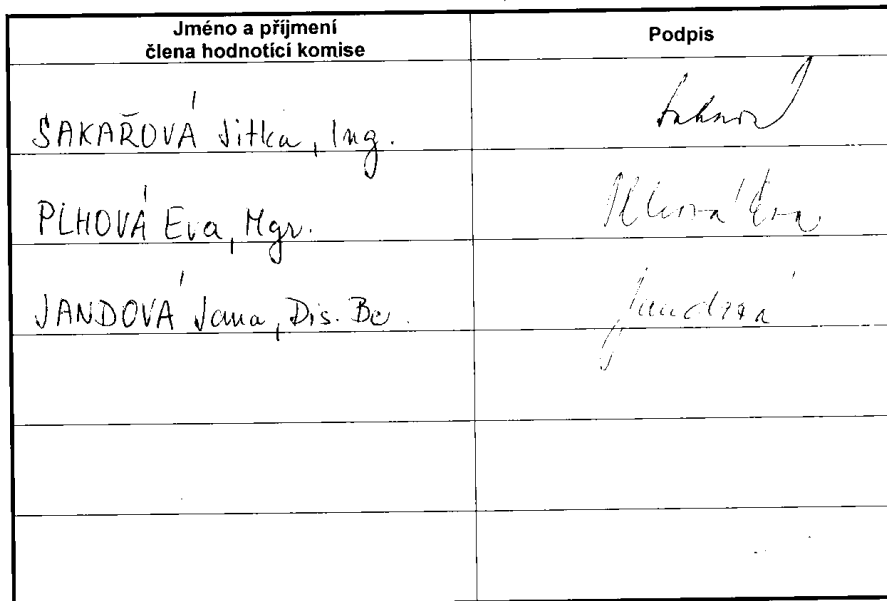 Jméno a příjmení
člena hodnotící komise
Podpis
SAKAŘOVÁ Jitka, Ing.
PLHOVÁ Eva, Mgr.
Plhová Eva
JANDOVÁ Jana, Dis. Bc.
Jandová